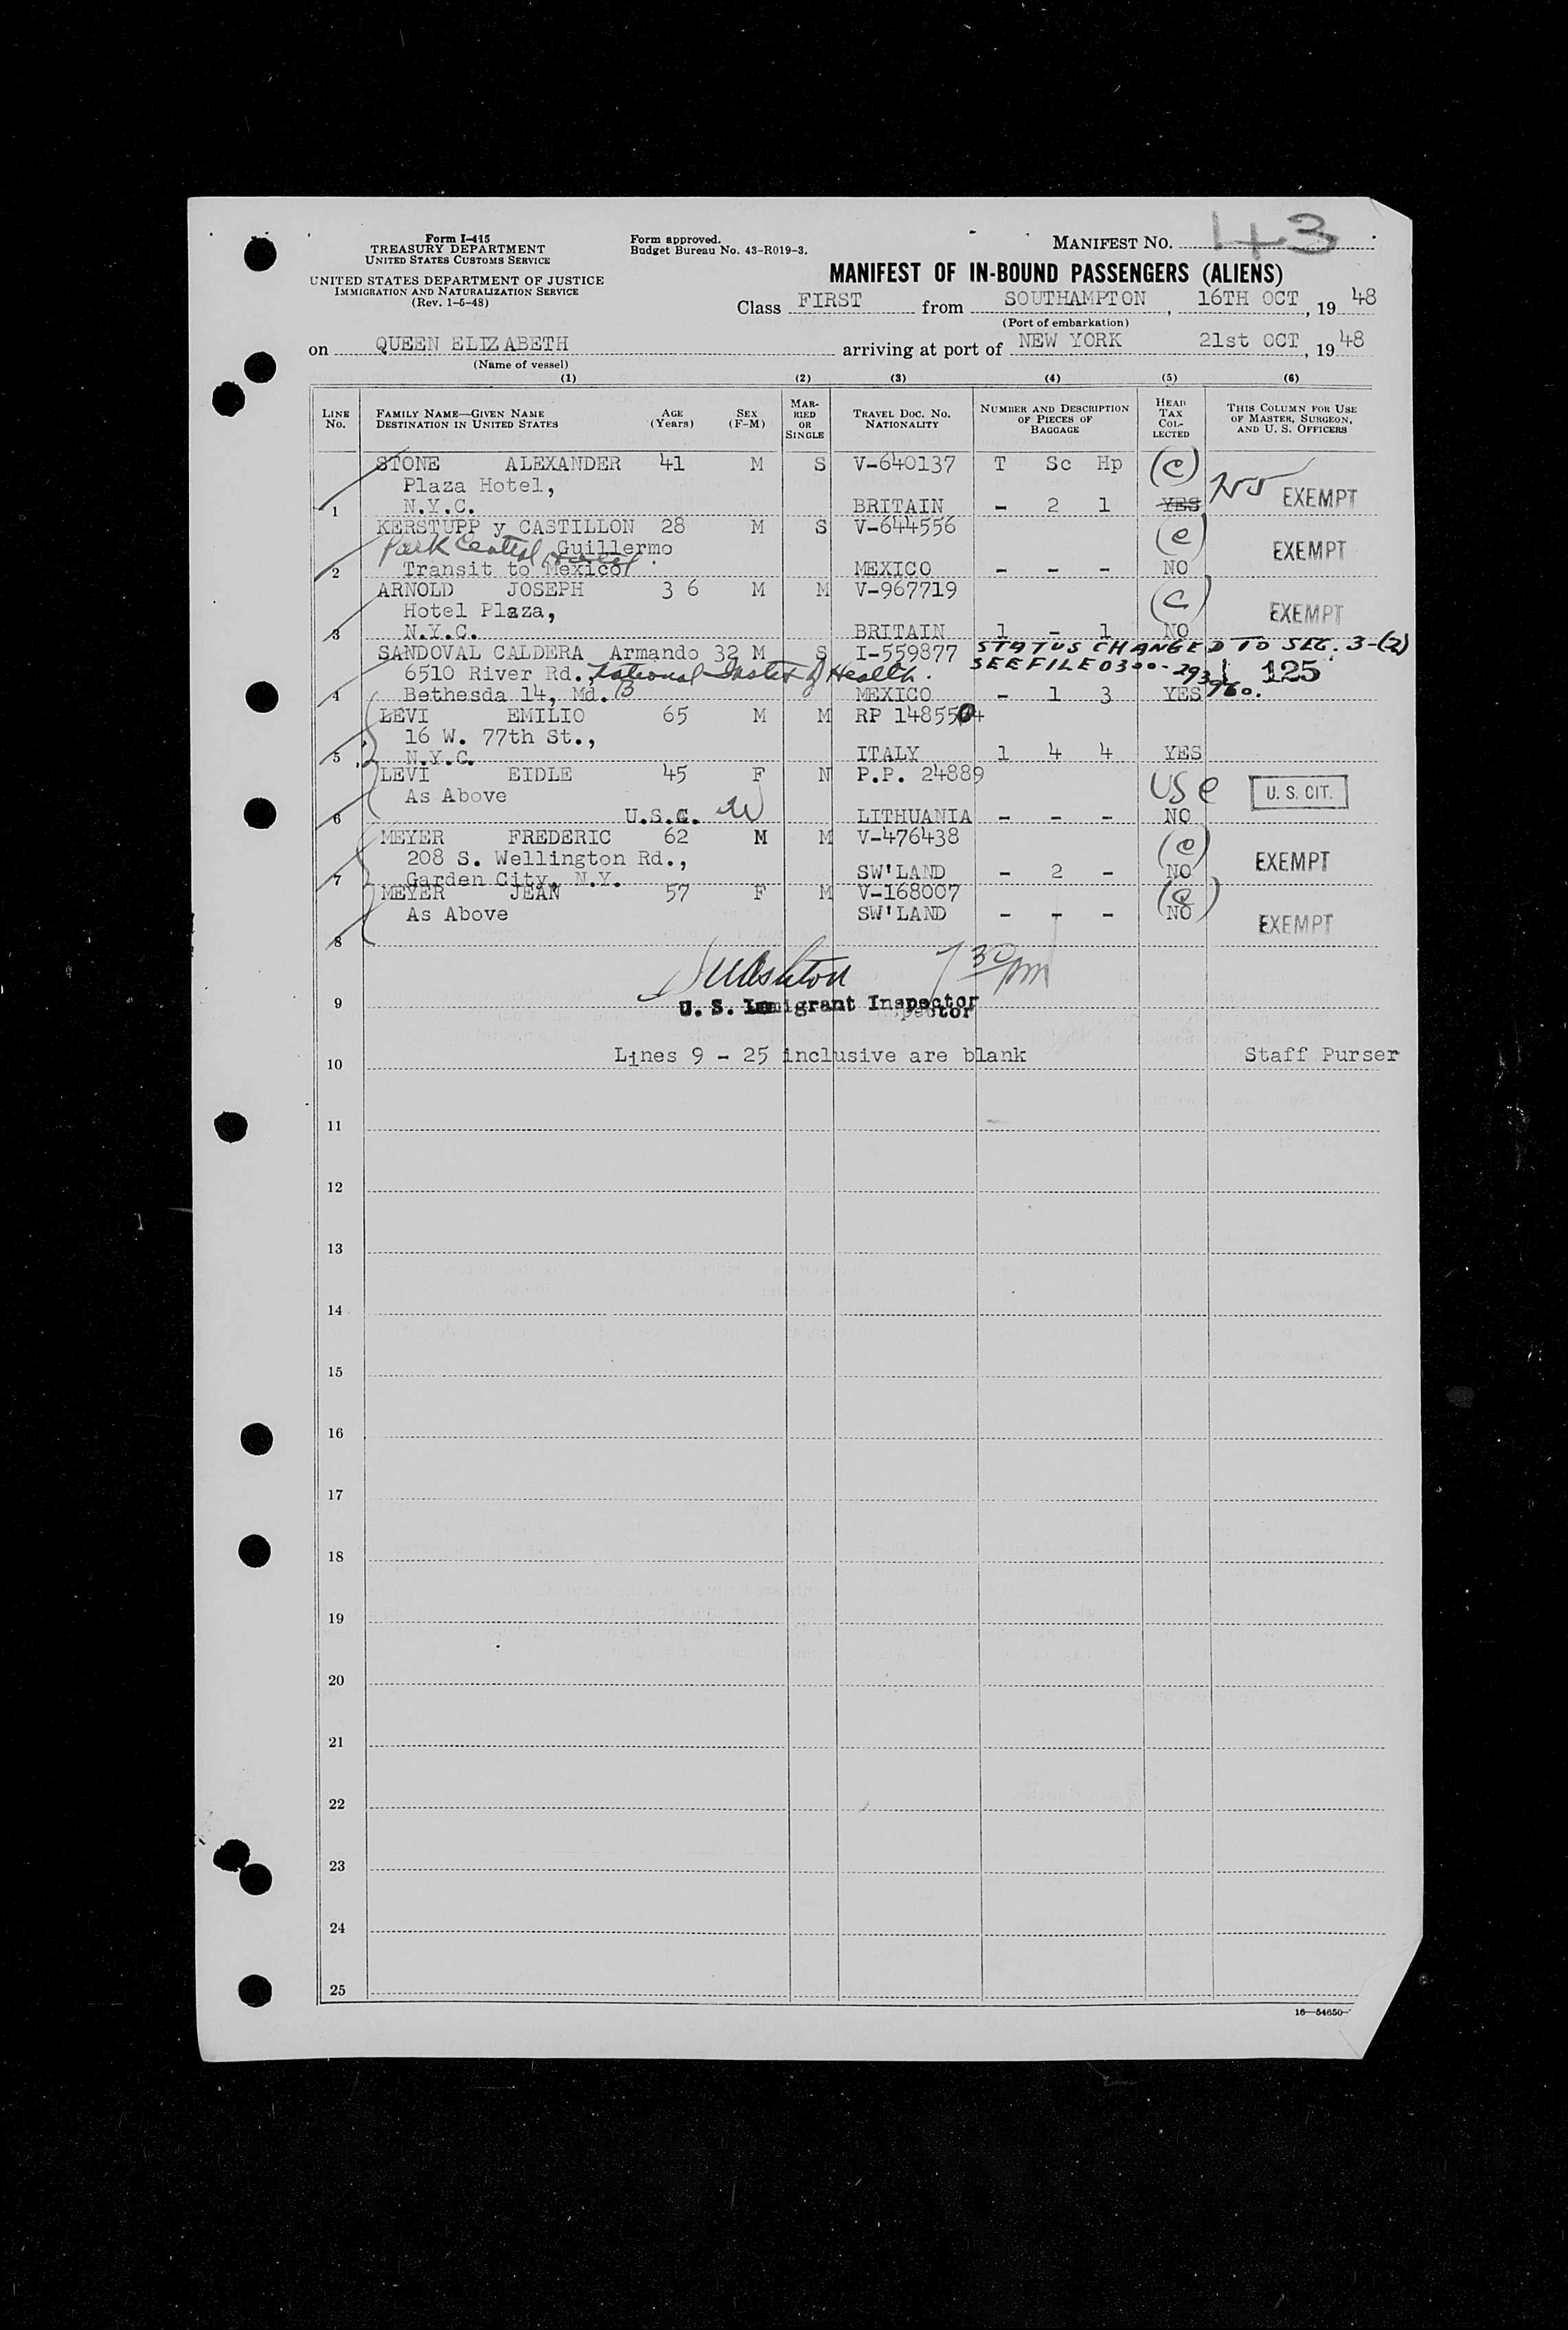 Form I-415
TREASURY DEPARTMENT
UNITED STATES CUSTOMS SERVICE
UNITED STATES DEPARTMENT OF JUSTICE
IMMIGRATION AND NATURALIZATION SERVICE
(Rev. 1-5-48)
Form approved.
Budget Bureau No. 43-R019-3.
MANIFEST NO. 43
MANIFEST OF IN-BOUND PASSENGERS (ALIENS)
Class FIRST from SOUTHAMPTON, 16TH OCT, 19 48
(Port of embarkation)
on QUEEN ELIZABETH arriving at port of NEW YORK 21st OCT, 19 48
(Name of vessel)
(1) (2) (3) (4) (5) (6)
LINE No. FAMILY NAME—GIVEN NAME DESTINATION IN UNITED STATES AGE (Years) SEX (F-M) MARRIED OR SINGLE TRAVEL DOC. NO. NATIONALITY NUMBER AND DESCRIPTION OF PIECES OF BAGGAGE HEAD TAX COLLECTED THIS COLUMN FOR USE OF MASTER, SURGEON, AND U. S. OFFICERS
STONE ALEXANDER 41 M S V-640137 T Sc Hp (C)
Plaza Hotel,
1 N.Y.C. BRITAIN - 2 1 YES EXEMPT
KERSTUPP y CASTILLON 28 M S V-644556 (C)
Park Central Hotel Guillermo EXEMPT
2 Transit to Mexico MEXICO - - - NO
ARNOLD JOSEPH 3 6 M M V-967719 (C)
Hotel Plaza, EXEMPT
3 N.Y.C. BRITAIN 1 - 1 NO
SANDOVAL CALDERA Armando 32 M S I-559877 STATUS CHANGED TO SEC. 3-(2)
6510 River Rd., National Instit of Health. SEE FILE 0300-293960. 125
4 Bethesda 14, Md. MEXICO - 1 3 YES
LEVI EMILIO 65 M M RP 1485504
16 W. 77th St.,
5 N.Y.C. ITALY 1 4 4 YES
LEVI EIDLE 45 F N P.P. 24889
As Above USC U. S. CIT.
6 U.S.C. LITHUANIA - - - NO
MEYER FREDERIC 62 M M V-476438 (C)
208 S. Wellington Rd., EXEMPT
7 Garden City, N.Y. SW'LAND - 2 - NO
MEYER JEAN 57 F M V-168007 (C)
As Above SW'LAND - - - NO EXEMPT
8
7 30 pm
9 U. S. Immigrant Inspector
10 Lines 9 - 25 inclusive are blank Staff Purser
11
12
13
14
15
16
17
18
19
20
21
22
23
24
25
16—54650-